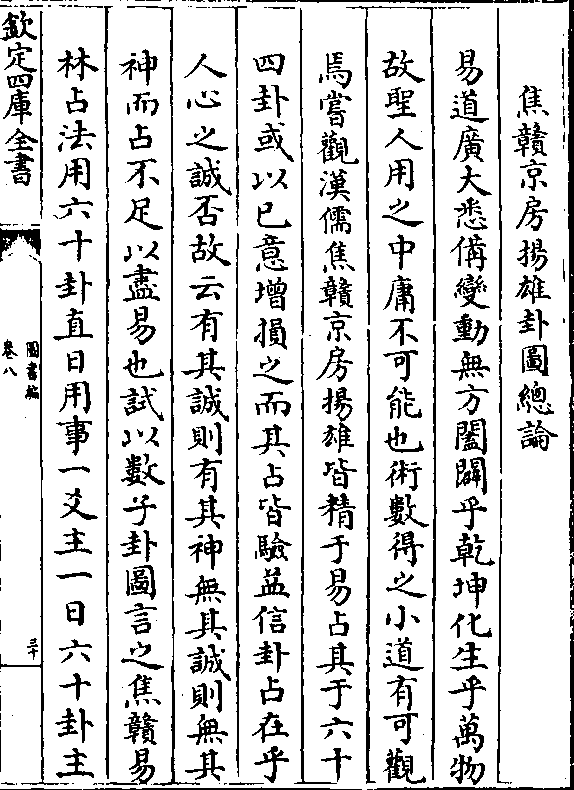 焦贛京房揚雄卦圖總論
易道廣大悉備變動無方闔闢乎乾坤化生乎萬物
故聖人用之中庸不可能也術數得之小道有可觀
焉嘗觀漢儒焦贛京房揚雄皆精于易占其于六十
四卦或以已意增損之而其占皆驗益信卦占在乎
人心之誠否故云有其誠則有其神無其誠則無其
神而占不足以盡易也試以數子卦圖言之焦贛易
林占法用六十卦直日用事一爻主一日六十卦主
欽定四庫全書
圖書編
卷八
三十